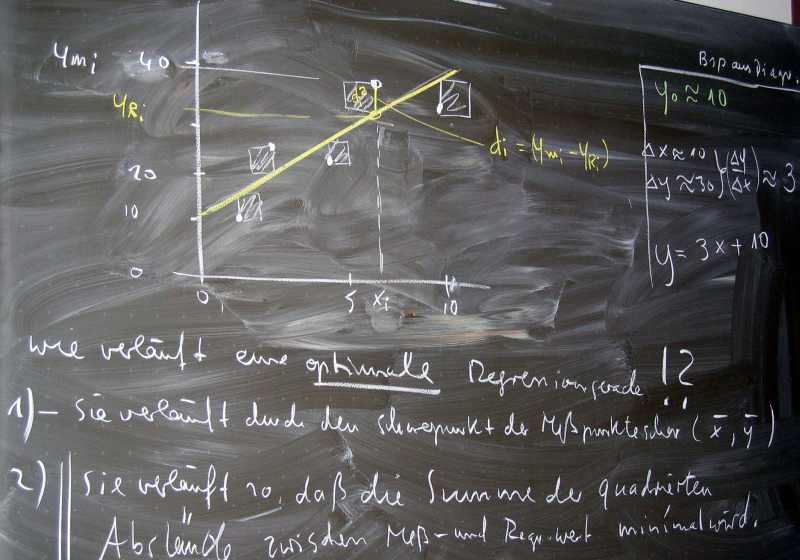 Bsp aus Diagr.
ymi 40
yRi
20
10
0
0 5 xi 10
di = (ymi - yRi)
y0 ≈ 10
Δx ≈ 10
Δy ≈ 30 } (Δy/Δx) ≈ 3
y = 3x + 10
wie verläuft eine optimale Regressionsgerade !?
1) - Sie verläuft durch den Schwerpunkt der Meßpunkteschar (x̄, ȳ)
2) Sie verläuft so, daß die Summe der quadrierten
Abstände zwischen Meß- und Regr.-wert minimal wird.